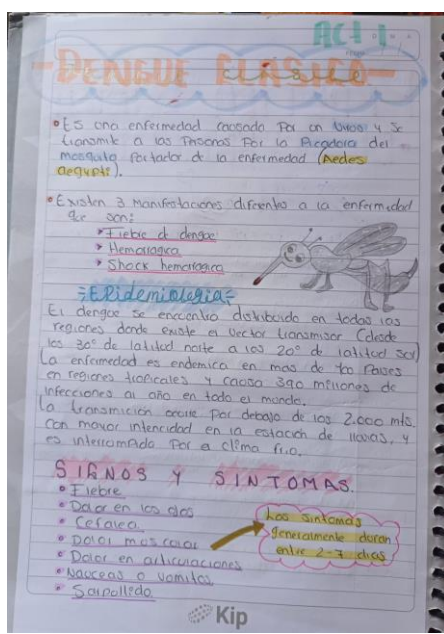 ACT 1
-DENGUE CLÁSICO-
• Es una enfermedad causada por un virus y se
transmite a las personas por la picadora del
mosquito portador de la enfermedad (Aedes
aegypti).
• Existen 3 manifestaciones diferentes a la enfermedad
que son:
➤ Fiebre de dengue
➤ Hemorragica
➤ Shock hemorragico
-Epidemiologia-
El dengue se encuentra distribuido en todas las
regiones donde existe el vector transmisor (desde
los 30° de latitud norte a los 20° de latitud sur)
La enfermedad es endemica en mas de 100 Paises
en regiones tropicales y causa 390 millones de
infecciones al año en todo el mundo.
La transmición ocurre por debajo de los 2.000 mts.
con mayor intencidad en la estación de lluvias, y
es interrumpido por el clima frio.
SIGNOS Y SINTOMAS.
• Fiebre
• Dolor en los ojos
• Cefalea
• Dolor muscular
• Dolor en articulaciones
• Nauceas o vomitos
• Sarpullido
Los sintomas
generalmente duran
entre 2-7 dias
Kip